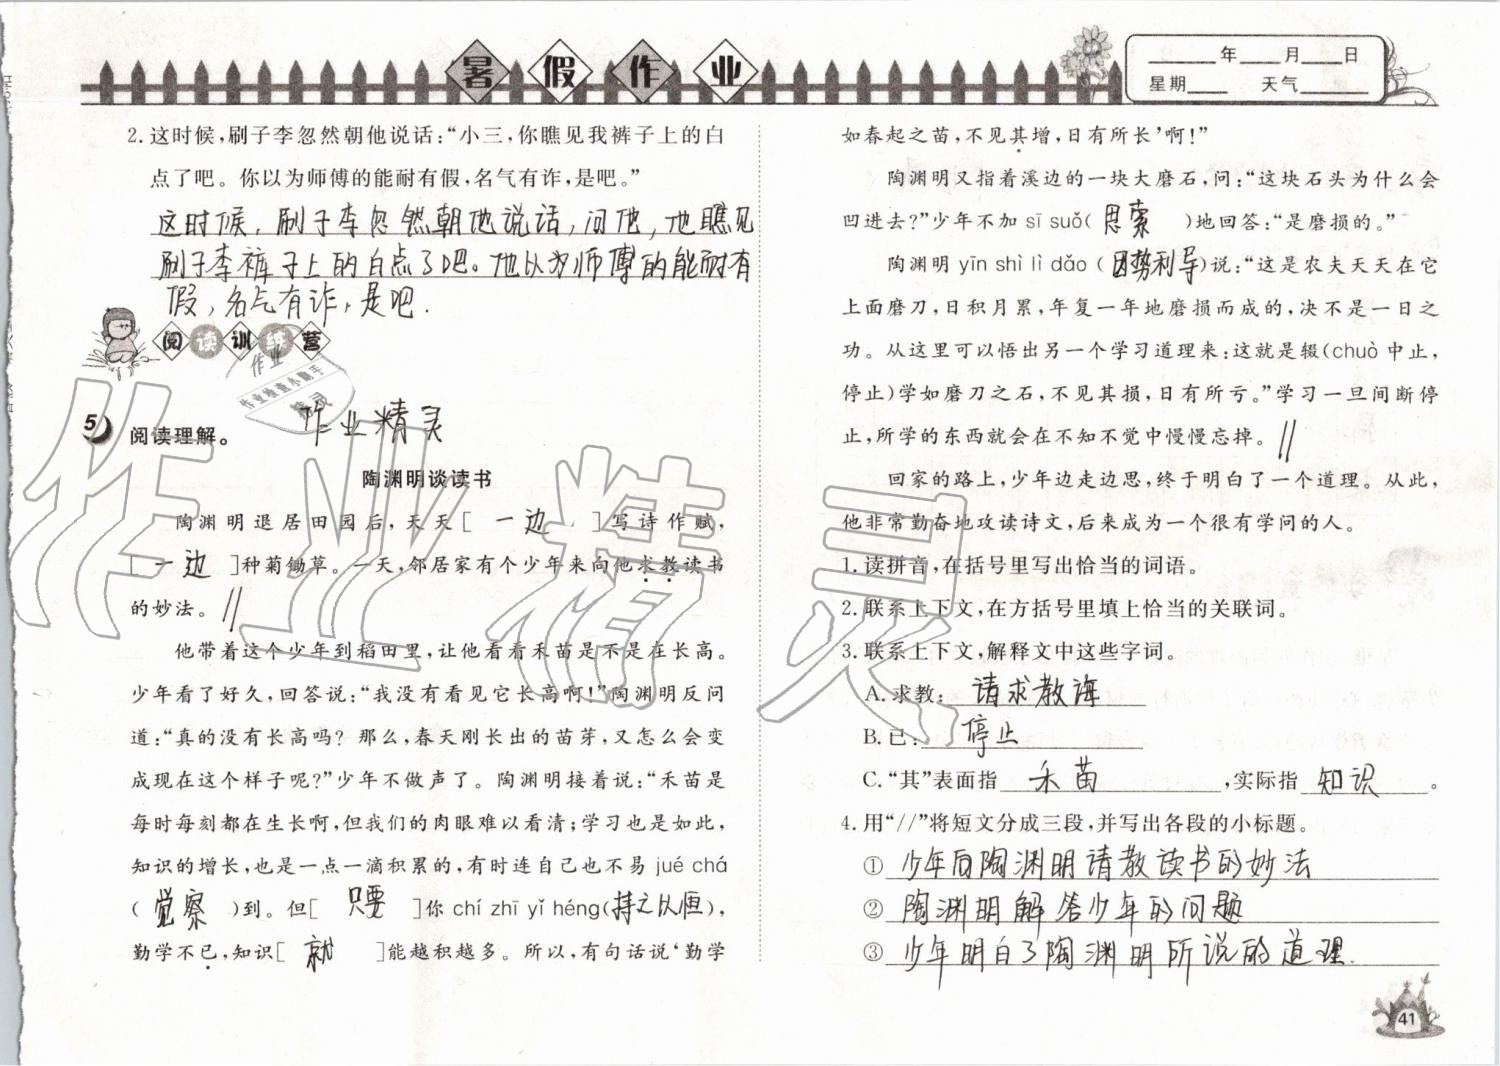 暑假作业
____年____月____日
星期____ 天气______
2.这时候,刷子李忽然朝他说话:“小三,你瞧见我裤子上的白
点了吧。你以为师傅的能耐有假,名气有诈,是吧。”
这时候,刷子李忽然朝他说话,问他,他瞧见
刷子李裤子上的白点了吧。他以为师傅的能耐有
假,名气有诈,是吧.
阅读训练营
作业
作业检查小助手
精灵
5
阅读理解。
作业精灵
陶渊明谈读书
陶渊明退居田园后,天天[ 一边 ]写诗作赋,
[ 一边 ]种菊锄草。一天,邻居家有个少年来向他求教读书
的妙法。//
他带着这个少年到稻田里,让他看看禾苗是不是在长高。
少年看了好久,回答说:“我没有看见它长高啊!”陶渊明反问
道:“真的没有长高吗?那么,春天刚长出的苗芽,又怎么会变
成现在这个样子呢?”少年不做声了。陶渊明接着说:“禾苗是
每时每刻都在生长啊,但我们的肉眼难以看清;学习也是如此,
知识的增长,也是一点一滴积累的,有时连自己也不易 jué chá
( 觉察 )到。但[ 只要 ]你 chí zhī yǐ héng(持之以恒),
勤学不已,知识[ 就 ]能越积越多。所以,有句话说‘勤学
如春起之苗,不见其增,日有所长’啊!”
陶渊明又指着溪边的一块大磨石,问:“这块石头为什么会
凹进去?”少年不加 sī suǒ( 思索 )地回答:“是磨损的。”
陶渊明 yīn shì lì dǎo( 因势利导)说:“这是农夫天天在它
上面磨刀,日积月累,年复一年地磨损而成的,决不是一日之
功。从这里可以悟出另一个学习道理来:这就是辍(chuò 中止,
停止)学如磨刀之石,不见其损,日有所亏。”学习一旦间断停
止,所学的东西就会在不知不觉中慢慢忘掉。//
回家的路上,少年边走边思,终于明白了一个道理。从此,
他非常勤奋地攻读诗文,后来成为一个很有学问的人。
1.读拼音,在括号里写出恰当的词语。
2.联系上下文,在方括号里填上恰当的关联词。
3.联系上下文,解释文中这些字词。
A.求教: 请求教诲
B.已: 停止
C.“其”表面指 禾苗 ,实际指 知识 。
4.用“//”将短文分成三段,并写出各段的小标题。
① 少年向陶渊明请教读书的妙法
② 陶渊明解答少年的问题
③ 少年明白了陶渊明所说的道理.
41
作业精灵